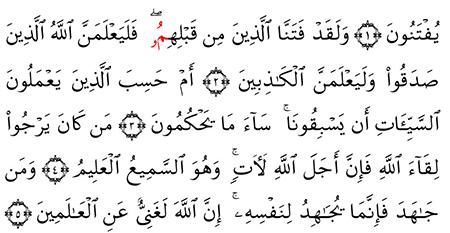 يُفْتَنُونَ ۝١ وَلَقَدْ فَتَنَّا ٱلَّذِينَ مِن قَبْلِهِمُۥۖ فَلَيَعْلَمَنَّ ٱللَّهُ ٱلَّذِينَ
صَدَقُواْ وَلَيَعْلَمَنَّ ٱلْكَٰذِبِينَ ۝٢ أَمْ حَسِبَ ٱلَّذِينَ يَعْمَلُونَ
ٱلسَّيِّـَٔاتِ أَن يَسْبِقُونَاۚ سَآءَ مَا يَحْكُمُونَ ۝٣ مَن كَانَ يَرْجُواْ
لِقَآءَ ٱللَّهِ فَإِنَّ أَجَلَ ٱللَّهِ لَأٓتٖۚ وَهُوَ ٱلسَّمِيعُ ٱلْعَلِيمُ ۝٤ وَمَن
جَٰهَدَ فَإِنَّمَا يُجَٰهِدُ لِنَفْسِهِۦٓۚ إِنَّ ٱللَّهَ لَغَنِيٌّ عَنِ ٱلْعَٰلَمِينَ ۝٥